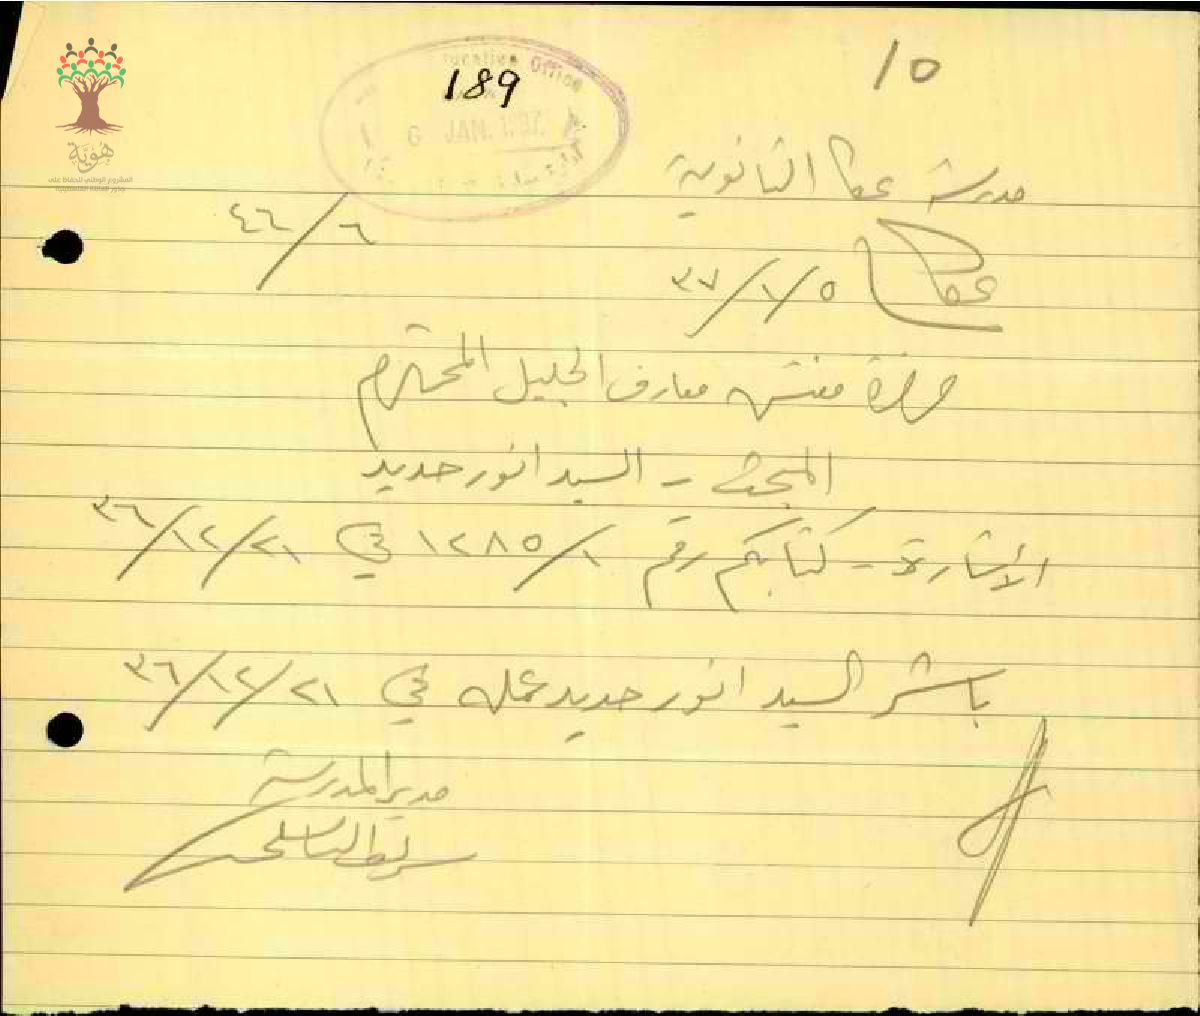 189
10
Education Office
6 JAN. 1937
هوية
المشروع الوطني للحفاظ على
جذور العائلة الفلسطينية
مدرسة عكا الثانوية
٤٦/٦
عكا ٣٧/١/٥
حضرة مفتش معارف الجليل المحترم
المبحث - السيد انور حديد
الأشارة - كتابكم رقم ١٢٨٥/١ في ٣٦/١٢/٢١
باشر السيد انور حديد عمله في ٣٦/١٢/٢١
مدير المدرسة